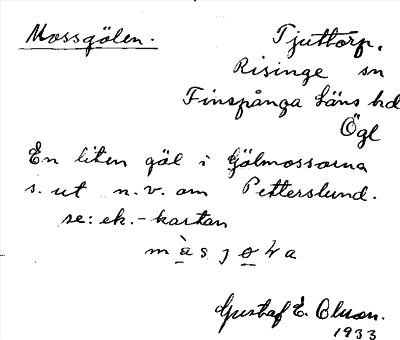 Mossgölen.
Tjuttorp,
Risinge sn
Finspånga läns hd
Ögl
En liten göl i Gölmossarna
s. ut n.v. om Petterslund.
se: ek.-kartan
Gustaf E. Olson.
1933